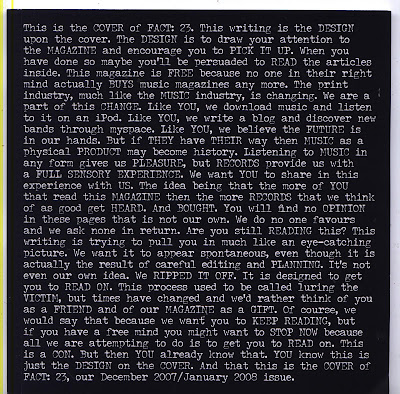 This is the COVER of FACT: 23. This writing is the DESIGN
upon the cover. The DESIGN is to draw your attention to
the MAGAZINE and encourage you to PICK IT UP. When you
have done so maybe you'll be persuaded to READ the articles
inside. This magazine is FREE because no one in their right
mind actually BUYS music magazines any more. The print
industry, much like the MUSIC industry, is changing. We are a
part of this CHANGE. Like YOU, we download music and listen
to it on an iPod. Like YOU, we write a blog and discover new
bands through myspace. Like YOU, we believe the FUTURE is
in our hands. But if THEY have THEIR way then MUSIC as a
physical PRODUCT may become history. Listening to MUSIC in
any form gives us PLEASURE, but RECORDS provide us with
a FULL SENSORY EXPERIENCE. We want YOU to share in this
experience with US. The idea being that the more of YOU
that read this MAGAZINE then the more RECORDS that we think
of as good get HEARD. And BOUGHT. You will find no OPINION
in these pages that is not our own. We do no one favours
and we ask none in return. Are you still READING this? This
writing is trying to pull you in much like an eye-catching
picture. We want it to appear spontaneous, even though it is
actually the result of careful editing and PLANNING. It's not
even our own idea. We RIPPED IT OFF. It is designed to get
you to READ ON. This process used to be called luring the
VICTIM, but times have changed and we'd rather think of you
as a FRIEND and of our MAGAZINE as a GIFT. Of course, we
would say that because we want you to KEEP READING, but
if you have a free mind you might want to STOP NOW because
all we are attempting to do is to get you to READ on. This
is a CON. But then YOU already know that. YOU know this is
just the DESIGN on the COVER. And that this is the COVER of
FACT: 23, our December 2007/January 2008 issue.